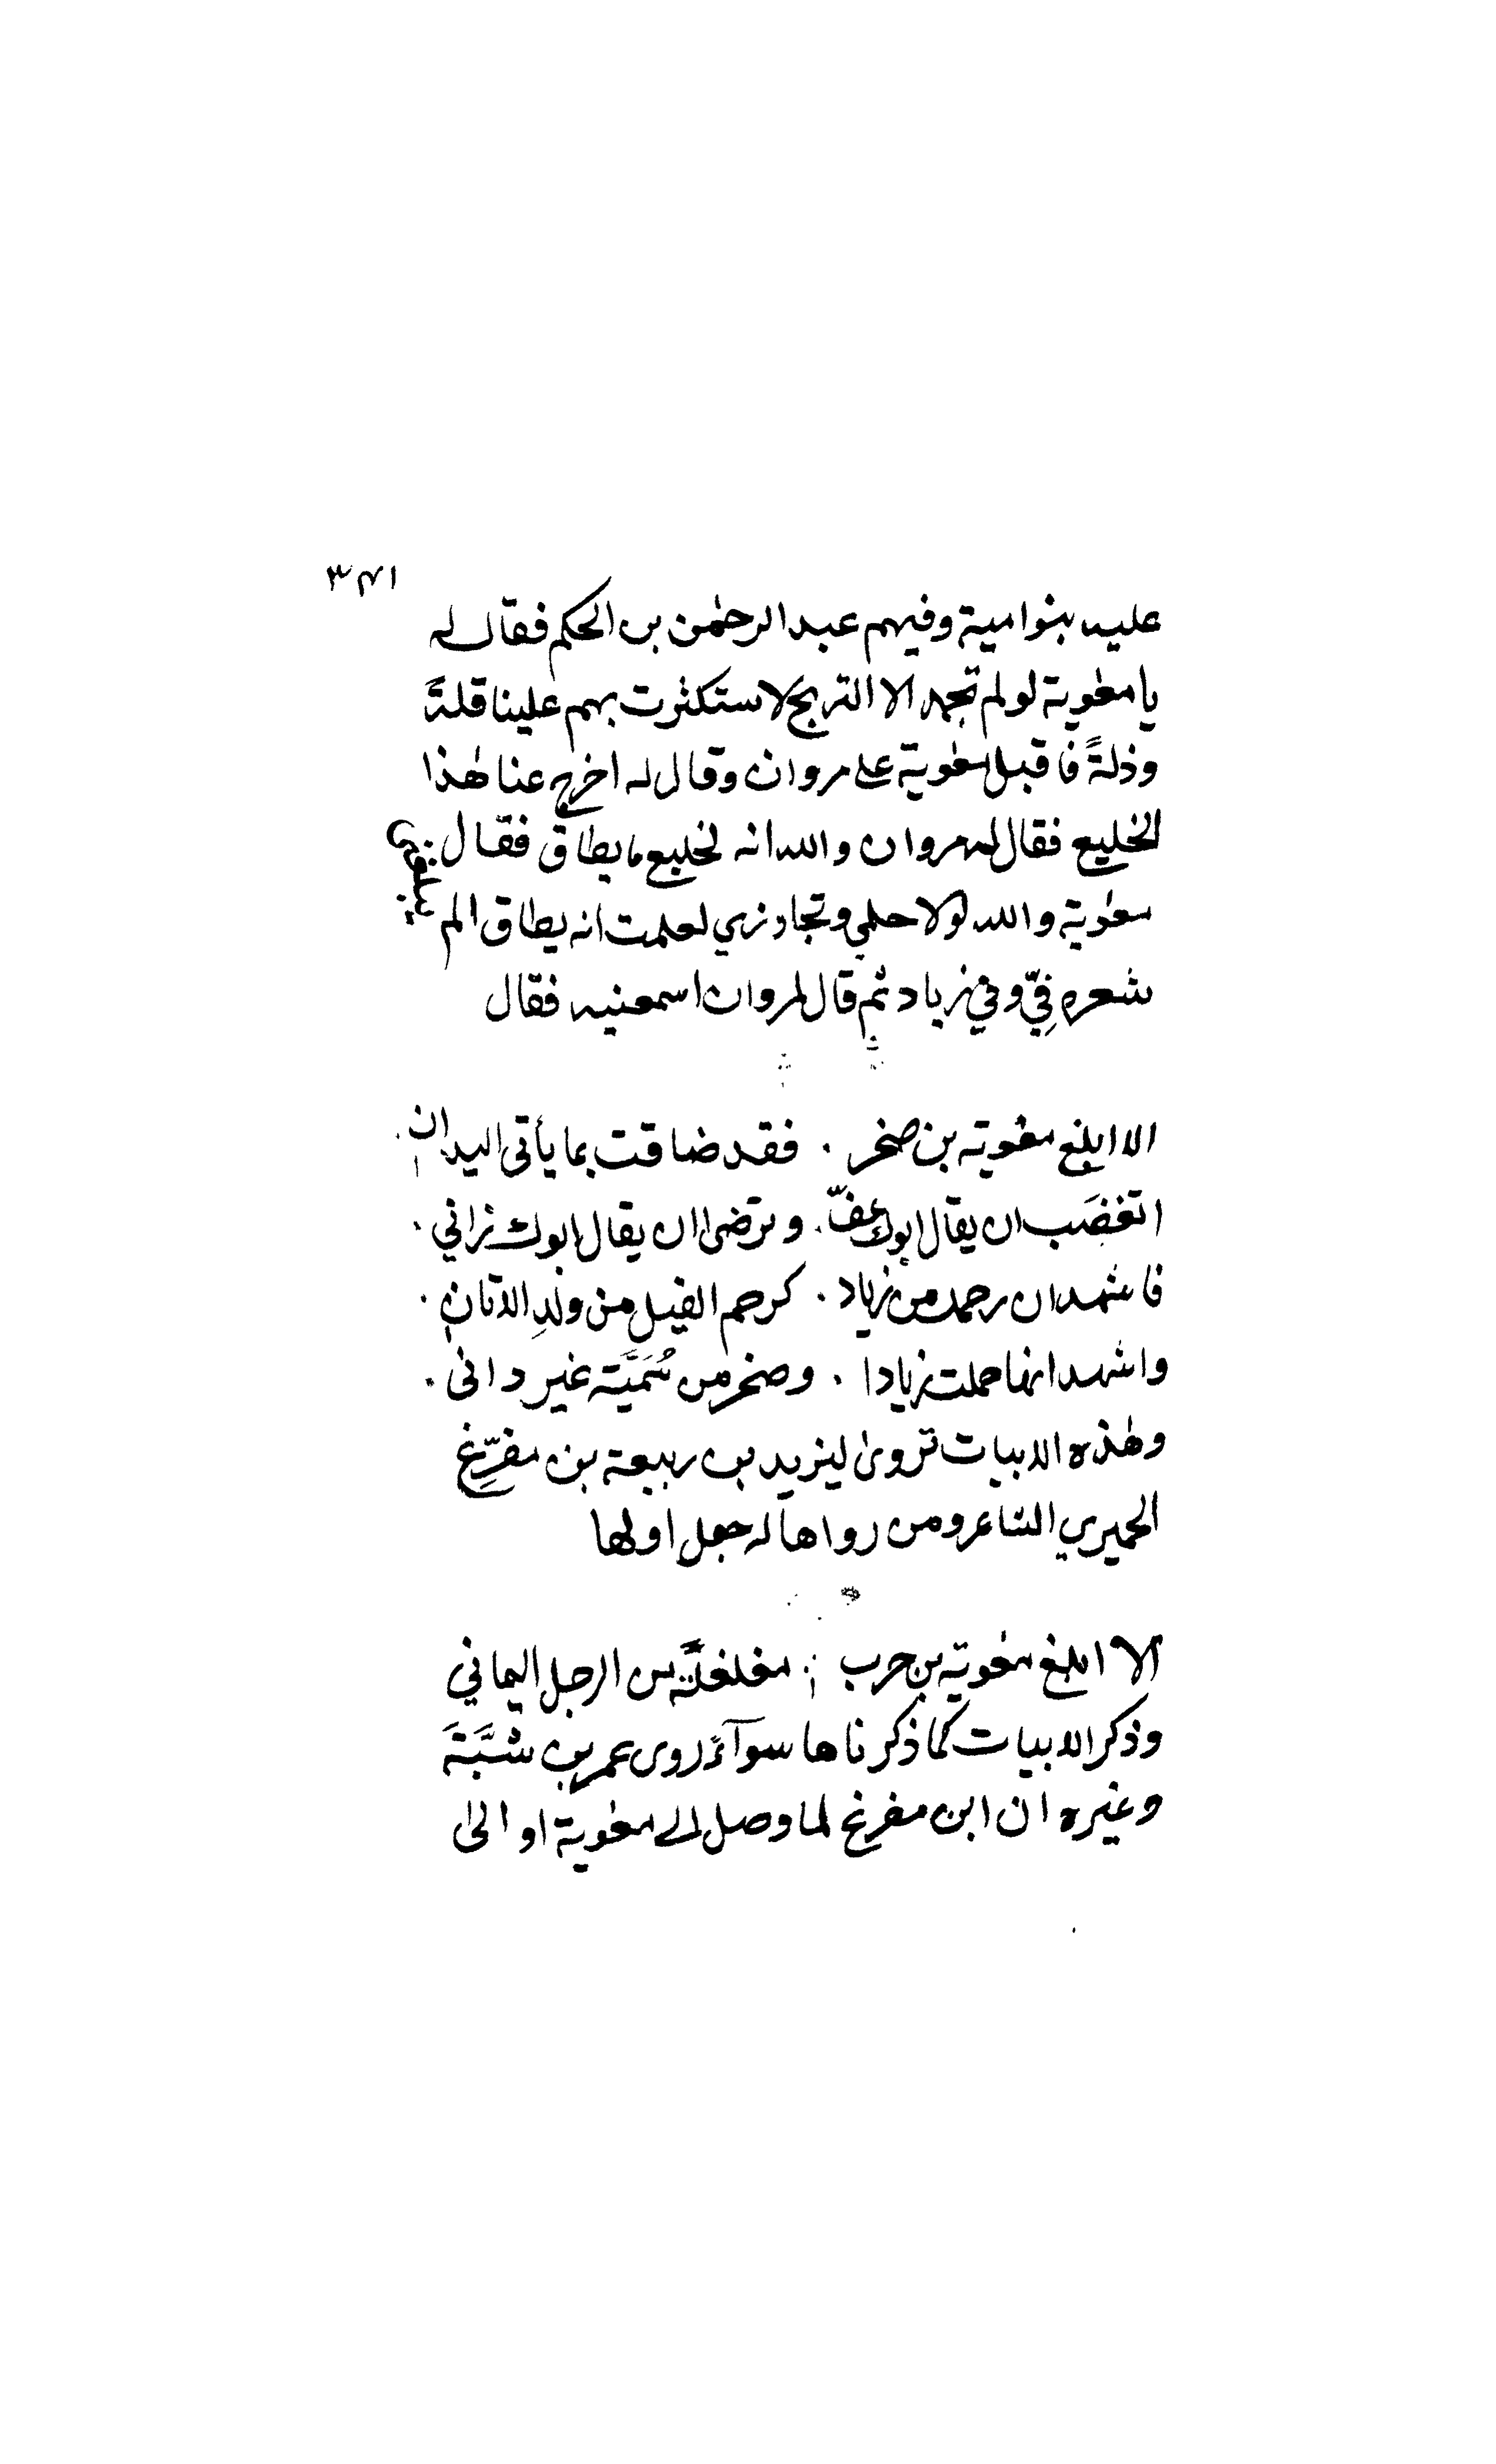 ٣٤١
عليه بنوا مية وفيهم عبد الرحمٰن بن الحكم فقال له
يا معٰوية لو لم تجد الا الزنج لاستكثرت بهم علينا قلةً
وذلةً فاقبل معٰوية على مروان وقال له اخرج عنا هٰذا
الخليع فقال له مروان والله انه لخليع ما يطاق فقال
معٰوية والله لولا حلمي وتجاوزي لعلمت انه يطاق الم يبلغني
شعره فِيّ وفي زياد ثم قال لمروان اسمعنيه فقال
الا ابلغ معٰوية بن صخر . فقد ضاقت بما يأتى اليدان .
اتغضَب ان يقال ابوك عفّ . وترضى ان يقال ابوك زاني .
فاشهد ان رحمك من زياد . كرحم الفيل من ولدِ الاتان .
واشهد انها حملت زيادا . وصخر من سُمَيَّة غير دانى .
وهٰذه الابيات تروىٰ ليزيد بن ربيعة بن مفرّغ
الحميري الشاعر ومن رواها له جعل اولها
الا ابلغ معٰوية بن حرب مغلغلةً من الرجل اليماني
وذكر الابيات كما ذكرناها سوآءً روى عمر بن شَبَّةَ
وغيره ان ابن مفرغ لما وصل الى معٰوية او الىٰ